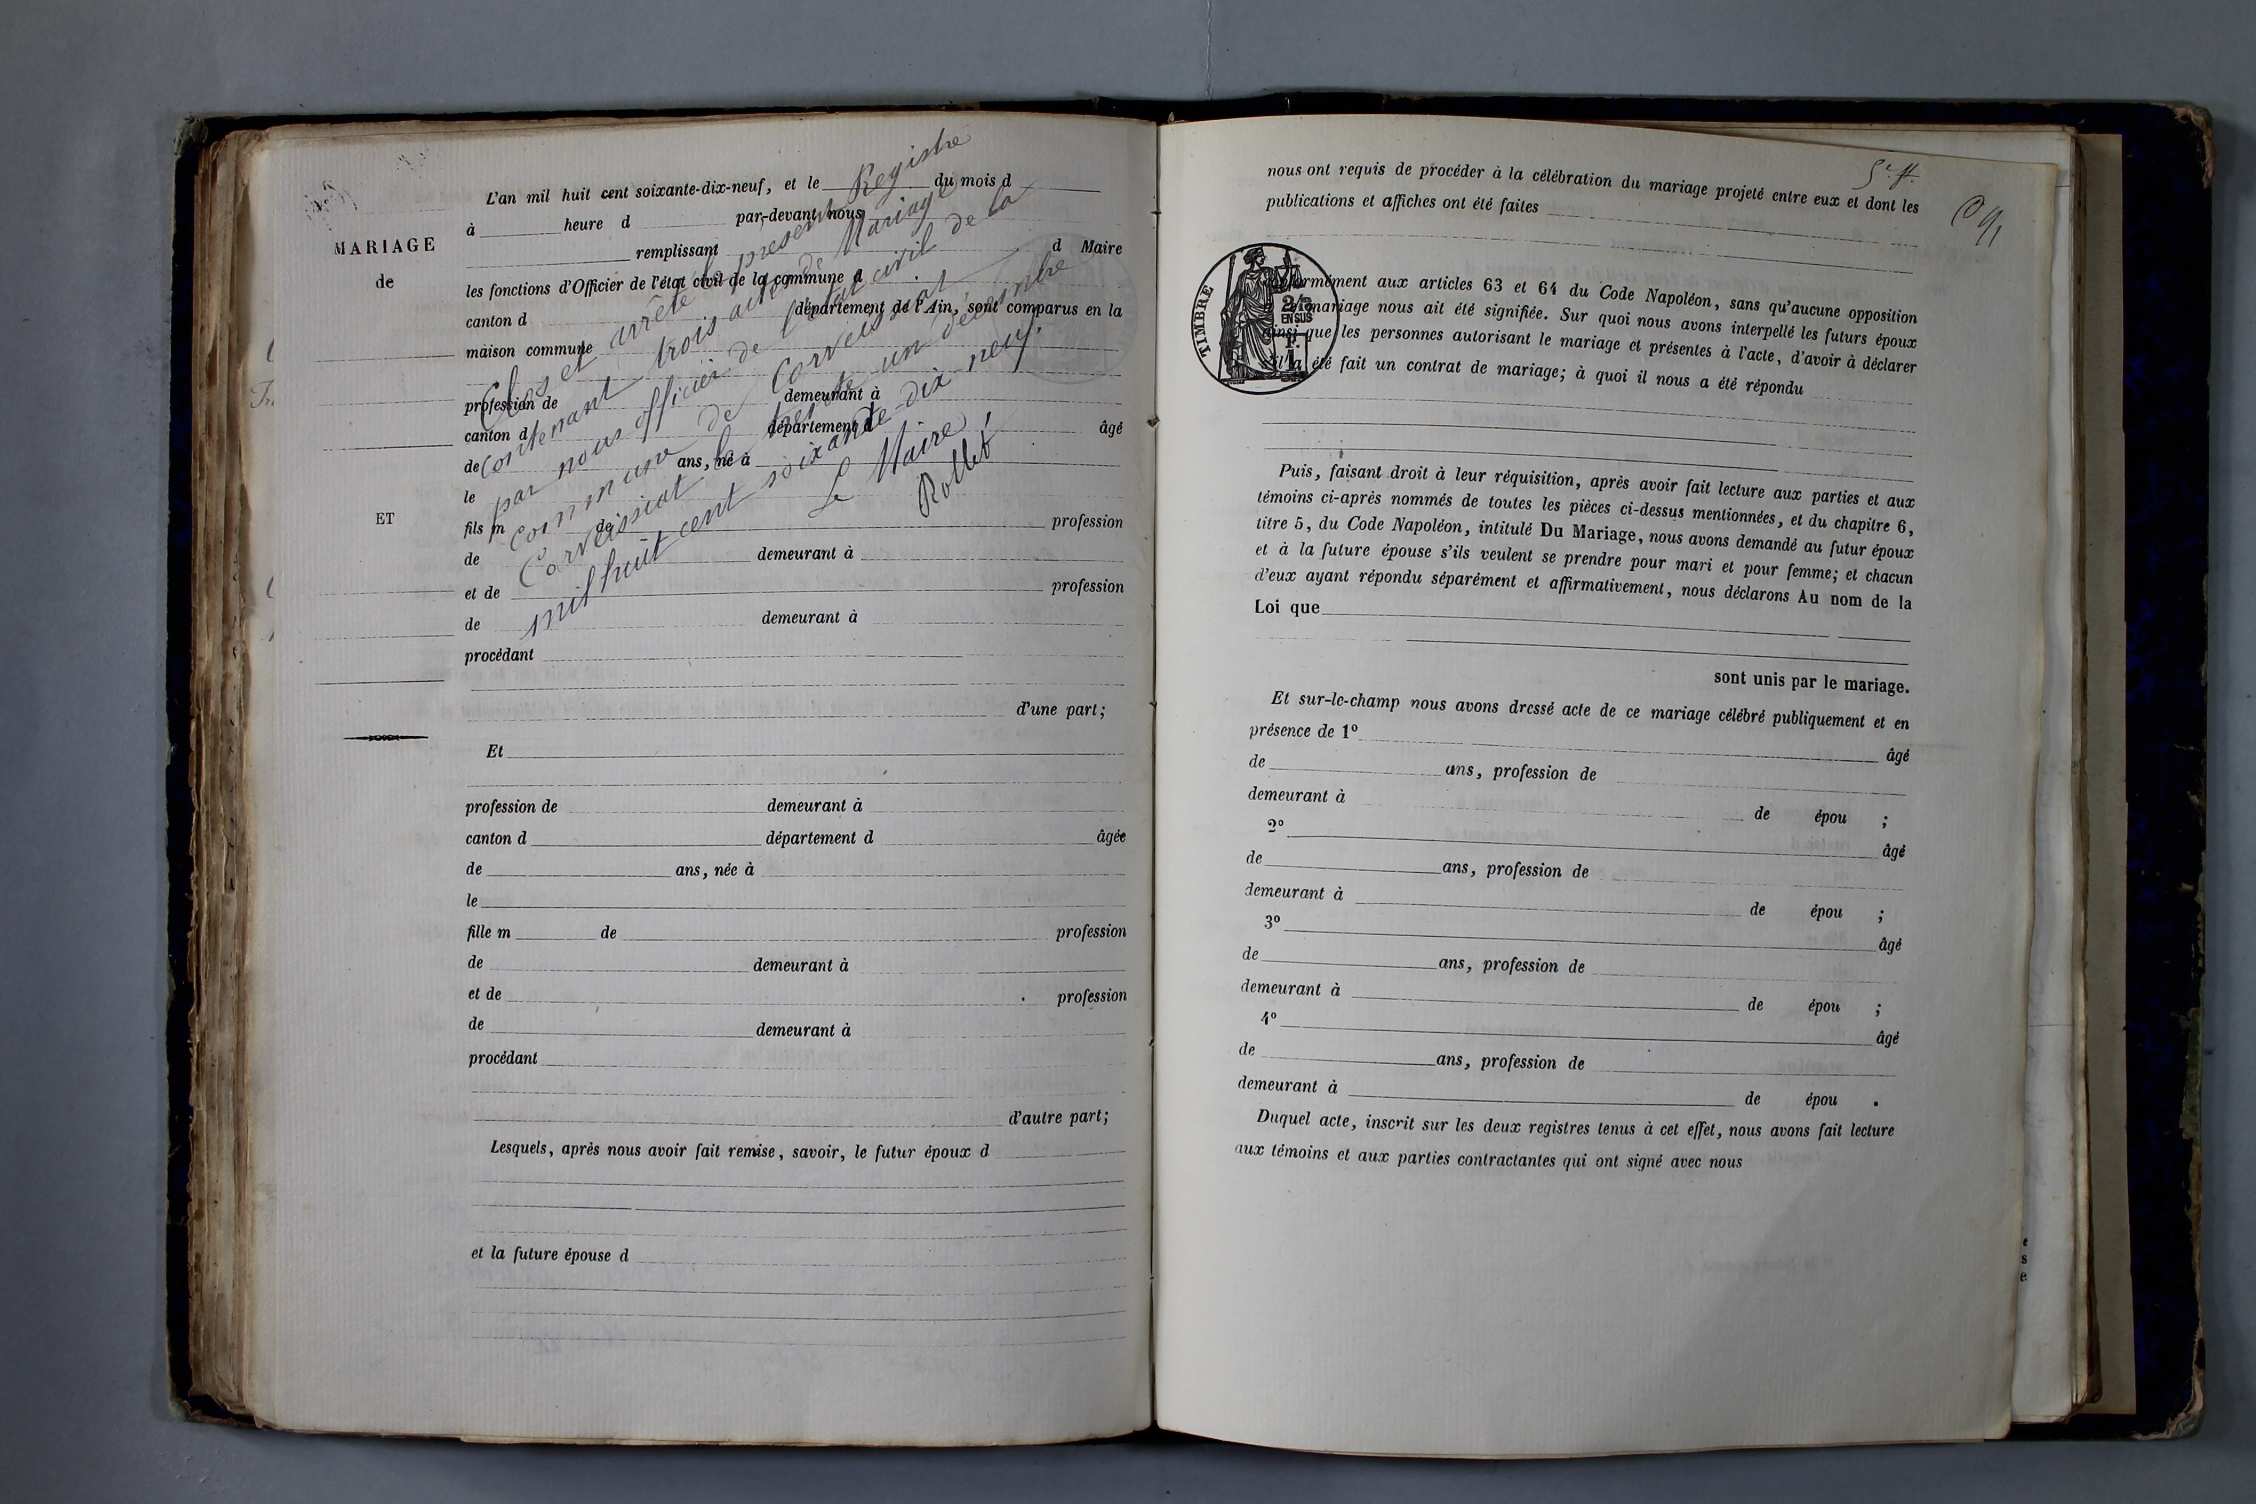 MARIAGE
de
ET
L'an mil huit cent soixante-dix-neuf, et le du mois d
à heure d par-devant nous
remplissant d Maire
les fonctions d'Officier de l'état civil de la commune d
canton d département de l'Ain, sont comparus en la
maison commune
profession de demeurant à
canton d département d âgé
de ans, né à
le
fils m de profession
de demeurant à
et de profession
de demeurant à
procédant
d'une part;
Et
profession de demeurant à
canton d département d âgée
de ans, née à
le
fille m de profession
de demeurant à
et de profession
de demeurant à
procédant
d'autre part;
Lesquels, après nous avoir fait remise, savoir, le futur époux d
et la future épouse d
Clos et arrêté le présent Registre
contenant trois actes de Mariage
par nous officier de l'état civil de la
commune de Corveissiat
Corveissiat le trente un décembre
mil huit cent soixante dix neuf.
Le Maire,
Rollet
5e ff.
nous ont requis de procéder à la célébration du mariage projeté entre eux et dont les
publications et affiches ont été faites
TIMBRE
2/10
EN SUS
1F.
conformément aux articles 63 et 64 du Code Napoléon, sans qu'aucune opposition
mariage nous ait été signifiée. Sur quoi nous avons interpellé les futurs époux
ainsi que les personnes autorisant le mariage et présentes à l'acte, d'avoir à déclarer
s'il a été fait un contrat de mariage; à quoi il nous a été répondu
Puis, faisant droit à leur réquisition, après avoir fait lecture aux parties et aux
témoins ci-après nommés de toutes les pièces ci-dessus mentionnées, et du chapitre 6,
titre 5, du Code Napoléon, intitulé Du Mariage, nous avons demandé au futur époux
et à la future épouse s'ils veulent se prendre pour mari et pour femme; et chacun
d'eux ayant répondu séparément et affirmativement, nous déclarons Au nom de la
Loi que
sont unis par le mariage.
Et sur-le-champ nous avons dressé acte de ce mariage célébré publiquement et en
présence de 1º âgé
de ans, profession de
demeurant à de épou ;
2º âgé
de ans, profession de
demeurant à de épou ;
3º âgé
de ans, profession de
demeurant à de épou ;
4º âgé
de ans, profession de
demeurant à de épou .
Duquel acte, inscrit sur les deux registres tenus à cet effet, nous avons fait lecture
aux témoins et aux parties contractantes qui ont signé avec nous